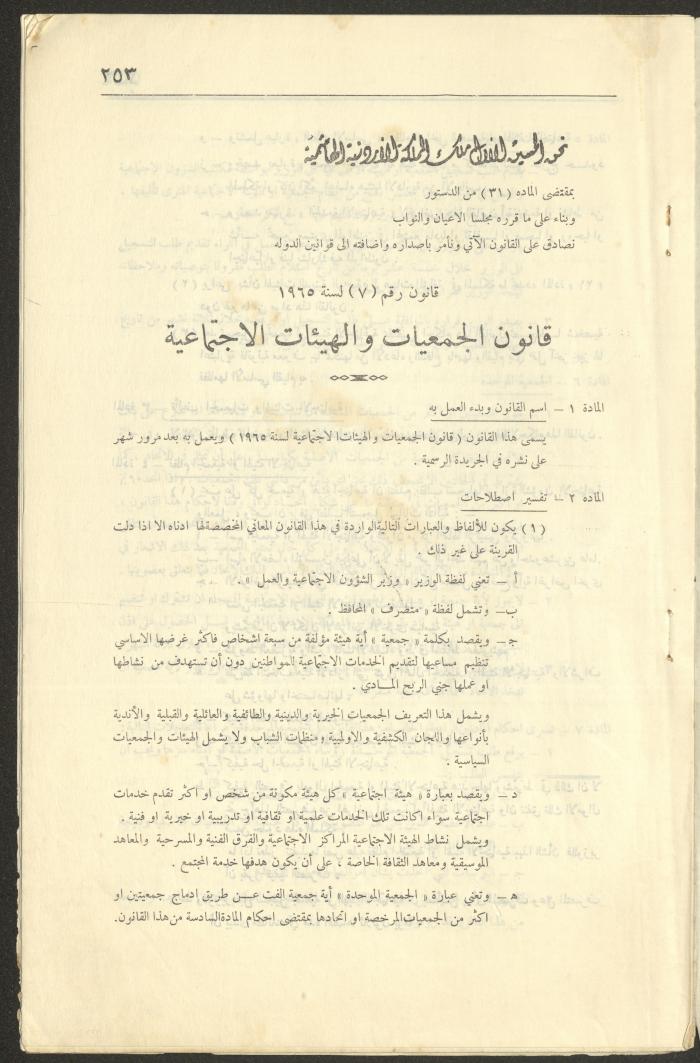 ٢٥٣
نحن الحسين الاول ملك المملكة الاردنية الهاشمية
بمقتضى الماده (٣١) من الدستور
وبناء على ما قرره مجلسا الاعيان والنواب
نصادق على القانون الآتي ونأمر باصداره واضافته الى قوانين الدوله
قانون رقم (٧) لسنة ١٩٦٥
قانون الجمعيات والهيئات الاجتماعية
المادة ١ – اسم القانون وبدء العمل به
يسمى هذا القانون ( قانون الجمعيات والهيئات الاجتماعية لسنة ١٩٦٥ ) ويعمل به بعد مرور شهر
على نشره في الجريدة الرسمية .
الماده ٢ – تفسير اصطلاحات
(١) يكون للألفاظ والعبارات التالية الواردة في هذا القانون المعاني المخصصة لها ادناه الا اذا دلت
القرينة على غير ذلك .
أ – تعني لفظة الوزير « وزير الشؤون الاجتماعية والعمل » .
ب – وتشمل لفظة « متصرف » المحافظ .
ج – ويقصد بكلمة « جمعية » أية هيئة مؤلفة من سبعة اشخاص فاكثر غرضها الاساسي
تنظيم مساعيها لتقديم الخدمات الاجتماعية للمواطنين دون أن تستهدف من نشاطها
او عملها جني الربح المــادي .
ويشمل هذا التعريف الجمعيات الخيرية والدينية والطائفية والعائلية والقبلية والأندية
بأنواعها واللجان الكشفية والاولمبية ومنظمات الشباب ولا يشمل الهيئات والجمعيات
السياسية .
د – ويقصد بعبارة « هيئة اجتماعية » كل هيئة مكونة من شخص او اكثر تقدم خدمات
اجتماعية سواء اكانت تلك الخدمات علمية او ثقافية او تدريبية او خيرية او فنية .
ويشمل نشاط الهيئة الاجتماعية المراكز الاجتماعية والفرق الفنية والمسرحية والمعاهد
الموسيقية ومعاهد الثقافة الخاصة ، على أن يكون هدفها خدمة المجتمع .
ه – وتعني عبارة « الجمعية الموحدة » أية جمعية الفت عــن طريق ادماج جمعيتين او
اكثر من الجمعيات المرخصة او اتحادها بمقتضى احكام المادة السادسة من هذا القانون.